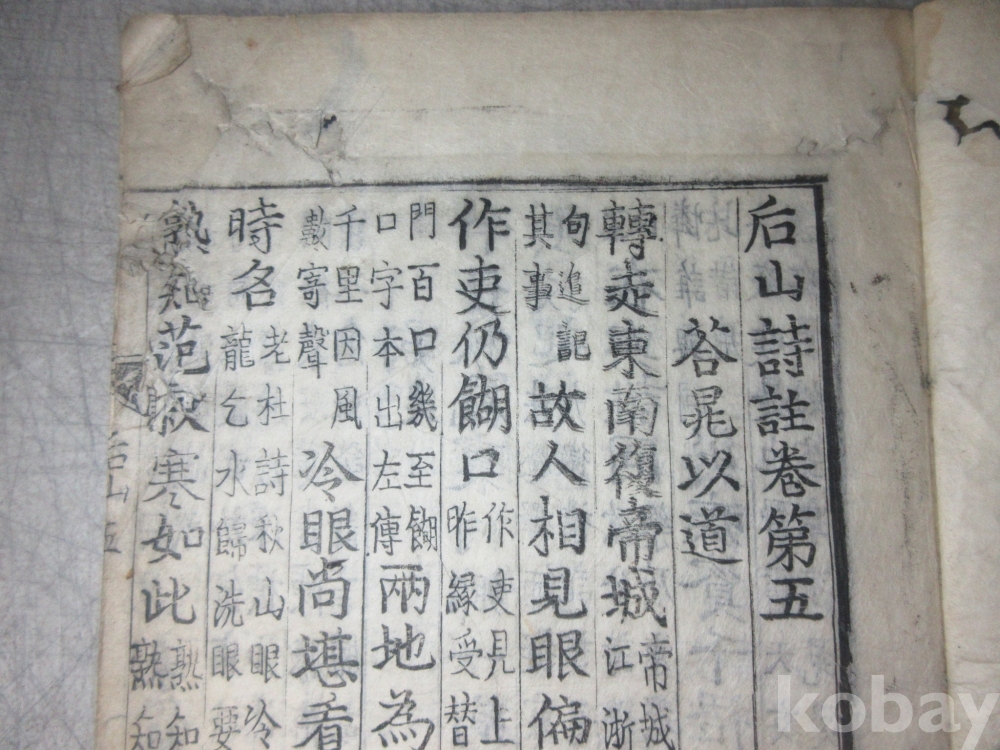 后山詩註卷第五
答晁以道
轉走東南復帝城 帝城
江浙
句追記
其事 故人相見眼偏
作吏仍餬口 作吏見上
昨緣受替
門百口幾至餬
口字本出左傳 兩地為
千里因風
戴寄聲 冷眼尚堪看
時名 老杜詩秋山眼冷
龍乞水歸洗眼要
熟知范叔寒如此 熟知
熟知
后山五
kobay